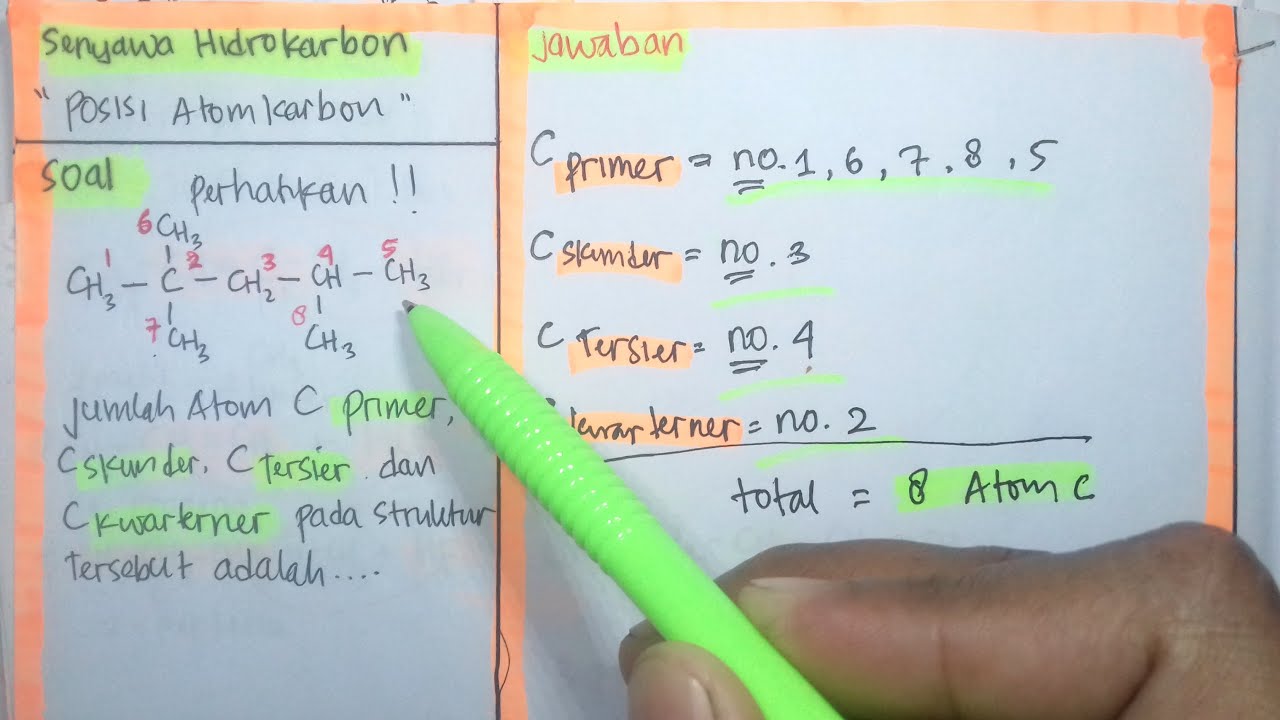 Senyawa Hidrokarbon
"Posisi Atom Karbon"
Soal
Perhatikan !!
6 CH3
1 2 3 4 5
CH3 – C – CH2 – CH – CH3
7 8
CH3 CH3
Jumlah Atom C primer,
C skunder, C tersier dan
C kwarterner pada struktur
tersebut adalah....
Jawaban
C primer = no. 1, 6, 7, 8, 5
C skunder = no. 3
C Tersier = no. 4
kwarterner = no. 2
total = 8 Atom C